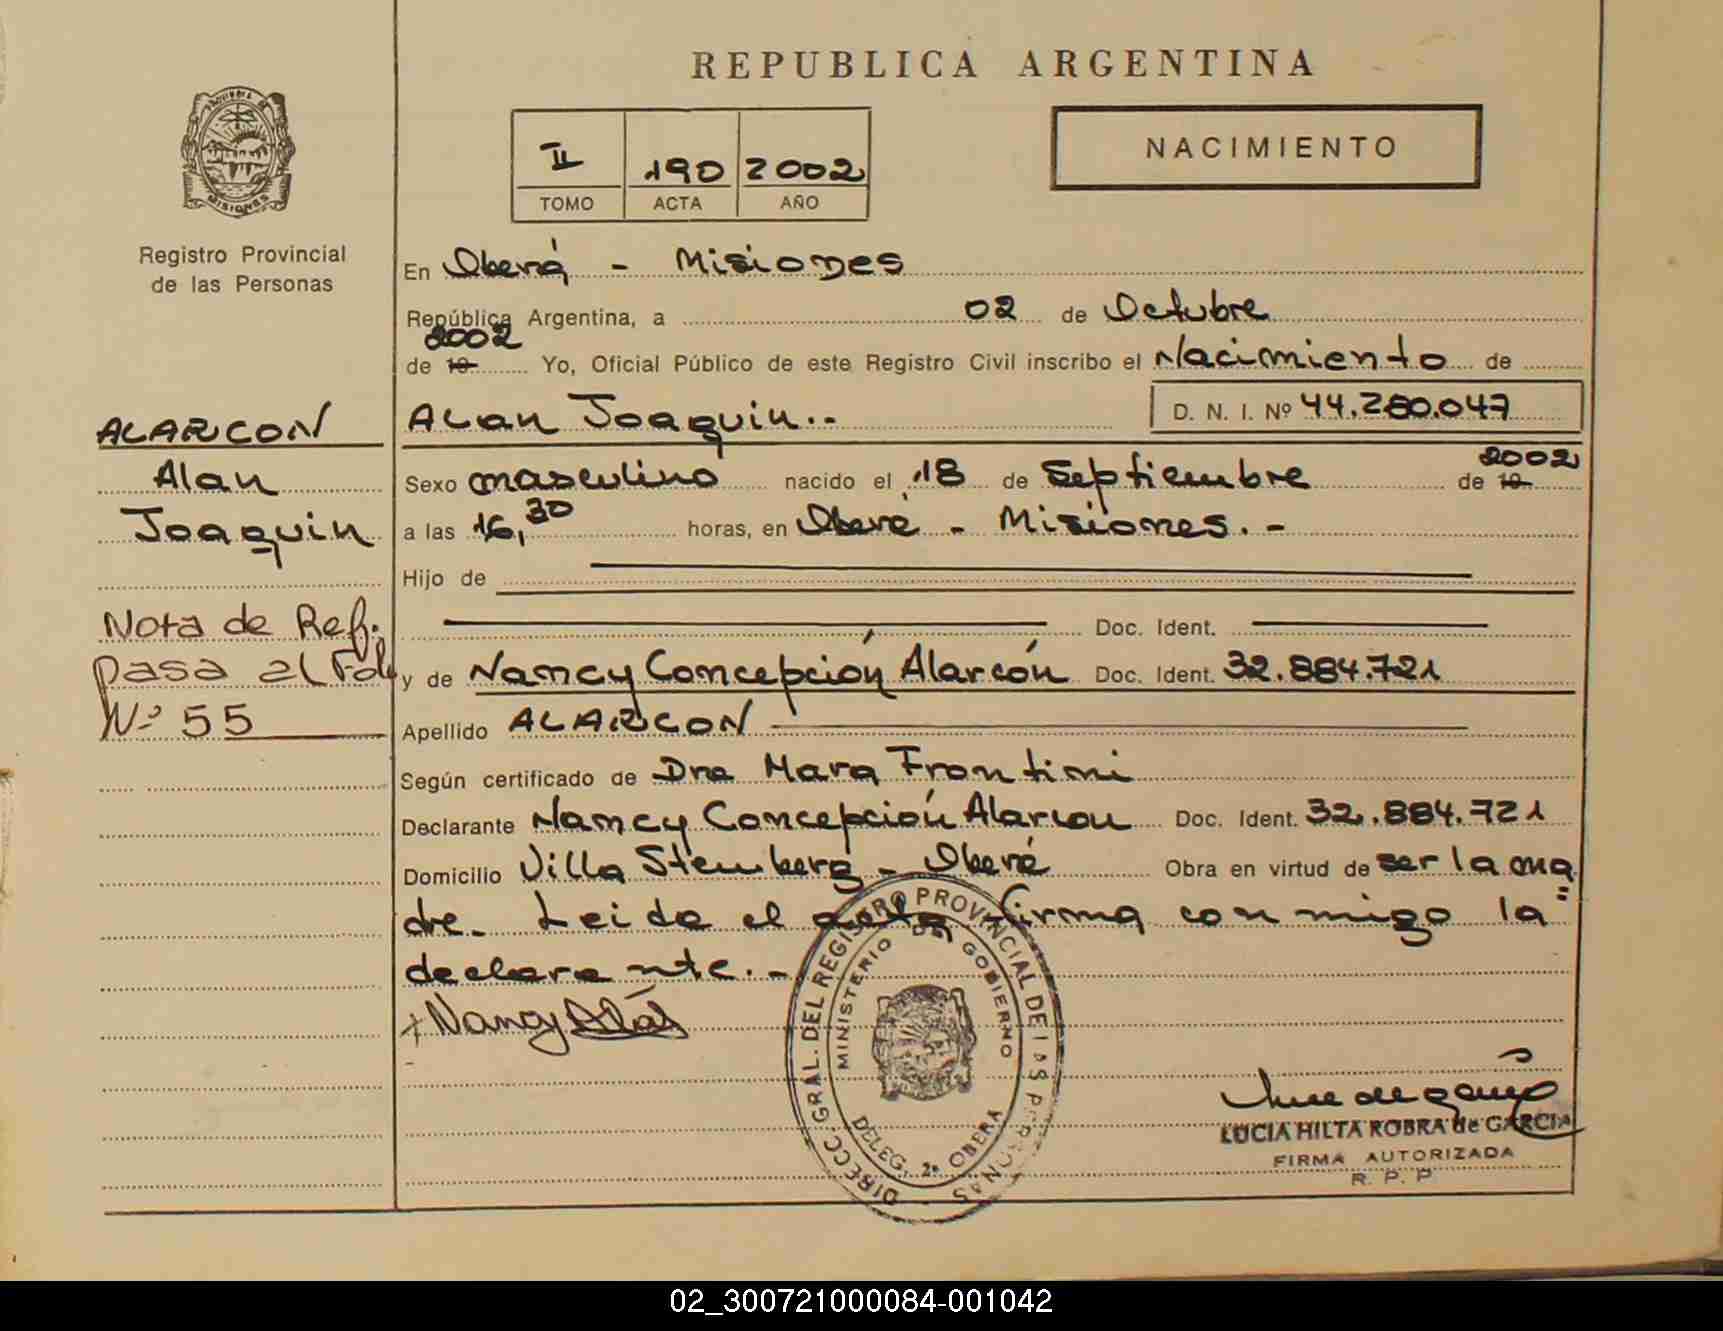 REPUBLICA ARGENTINA
PROVINCIA DE
MISIONES
Registro Provincial
de las Personas
II 190 2002
TOMO ACTA AÑO
NACIMIENTO
En Oberá - Misiones
República Argentina, a 02 de Octubre
2002
de 19 Yo, Oficial Público de este Registro Civil inscribo el Nacimiento de
ALARCON
Alan
Joaquin
Nota de Ref.
pasa al Fol
Nº 55
Alan Joaquin.-
D. N. I. Nº 44.280.047
Sexo masculino nacido el 18 de Septiembre de 19 2002
a las 16,30 horas, en Oberá - Misiones.-
Hijo de
Doc. Ident.
y de Nancy Concepción Alarcón Doc. Ident. 32.884.721
Apellido ALARCON
Según certificado de Dra Mara Frontini
Declarante Nancy Concepción Alarcon Doc. Ident. 32.884.721
Domicilio Villa Stemberg - Oberá Obra en virtud de ser la ma
dre.- Leida el acta firma con migo la
declarante.-
Nancy
DIRECC. GRAL. DEL REGISTRO PROVINCIAL DE LAS PERSONAS
MINISTERIO DE GOBIERNO
DELEG. 2ª OBERA
LUCIA HILTA ROBRA de GARCIA
FIRMA AUTORIZADA
R. P. P.
02_300721000084-001042